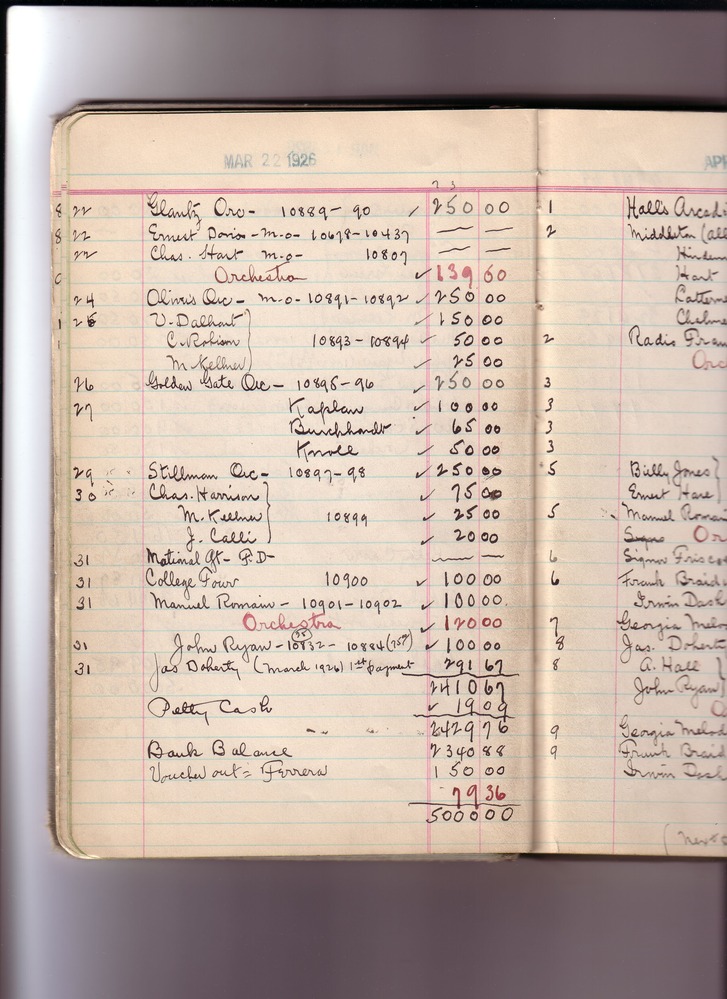 MAR 22 1926
23
8 22 Glantz Orc - 10889 - 90 ✓ 250 00
8 22 Ernest Davis - m.o - 10678 - 10437 — —
22 Chas. Hart m.o - 10807 — —
0 Orchestra ✓ 139 60
24 Olivers Orc - m.o - 10891 - 10892 ✓ 250 00
1 25 V. Dalhart ✓ 150 00
1 C. Robison 10893 - 10894 ✓ 50 00
M. Kellner ✓ 25 00
26 Golden Gate Orc - 10895 - 96 ✓ 250 00
27 Kaplan ✓ 100 00
Burckhardt ✓ 65 00
Knoll ✓ 50 00
29 Stillman Orc - 10897 - 98 ✓ 250 00
30 Chas. Harrison ✓ 75 00
M. Kellner 10899 ✓ 25 00
J. Calli ✓ 20 00
31 National Qt - P.D - — —
31 College Four 10900 ✓ 100 00
31 Manuel Romain - 10901 - 10902 ✓ 100 00
Orchestra ✓ 120 00
31 John Ryan - 10832 - 10884 ✓ 100 00
31 Jas Doherty (March 1926) 1st payment 291 67
2410 67
Petty Cash ✓ 19 09
2429 76
Bank Balance 2340 88
Voucher out = Ferrera 150 00
79 36
5000 00
AP
1 Hall's Arcadi
2 Middleton (all
Hinder
Hart
Latterm
Chalme
2 Radio Fran
Orc
3
3
3
3
5 Billy Jones
Ernest Hare
5 Manuel Romai
Or
6 Signor Frisco
6 Frank Braid
Irwin Dash
7 Georgia Melo
8 Jas. Dohert
8 A. Hall
John Ryan
O
9 Georgia Melod
9 Frank Braid
Irwin Dash